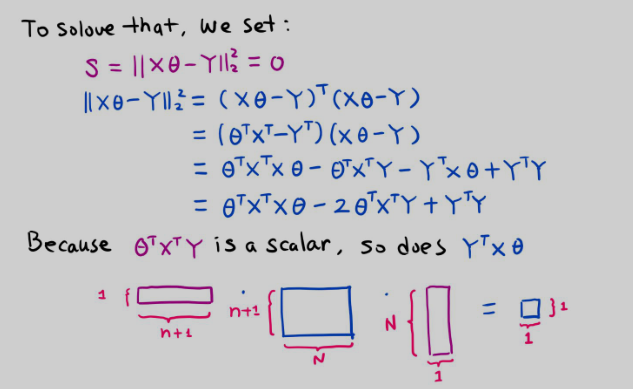 To Solove that, we set :
S = ||Xθ-Y||₂² = 0
||Xθ-Y||₂² = (Xθ-Y)ᵀ(Xθ-Y)
= (θᵀXᵀ-Yᵀ)(Xθ-Y)
= θᵀXᵀXθ - θᵀXᵀY - YᵀXθ + YᵀY
= θᵀXᵀXθ - 2θᵀXᵀY + YᵀY
Because θᵀXᵀY is a scalar, so does YᵀXθ
1 { · n+1 { · N { = }1
n+1 N 1 1